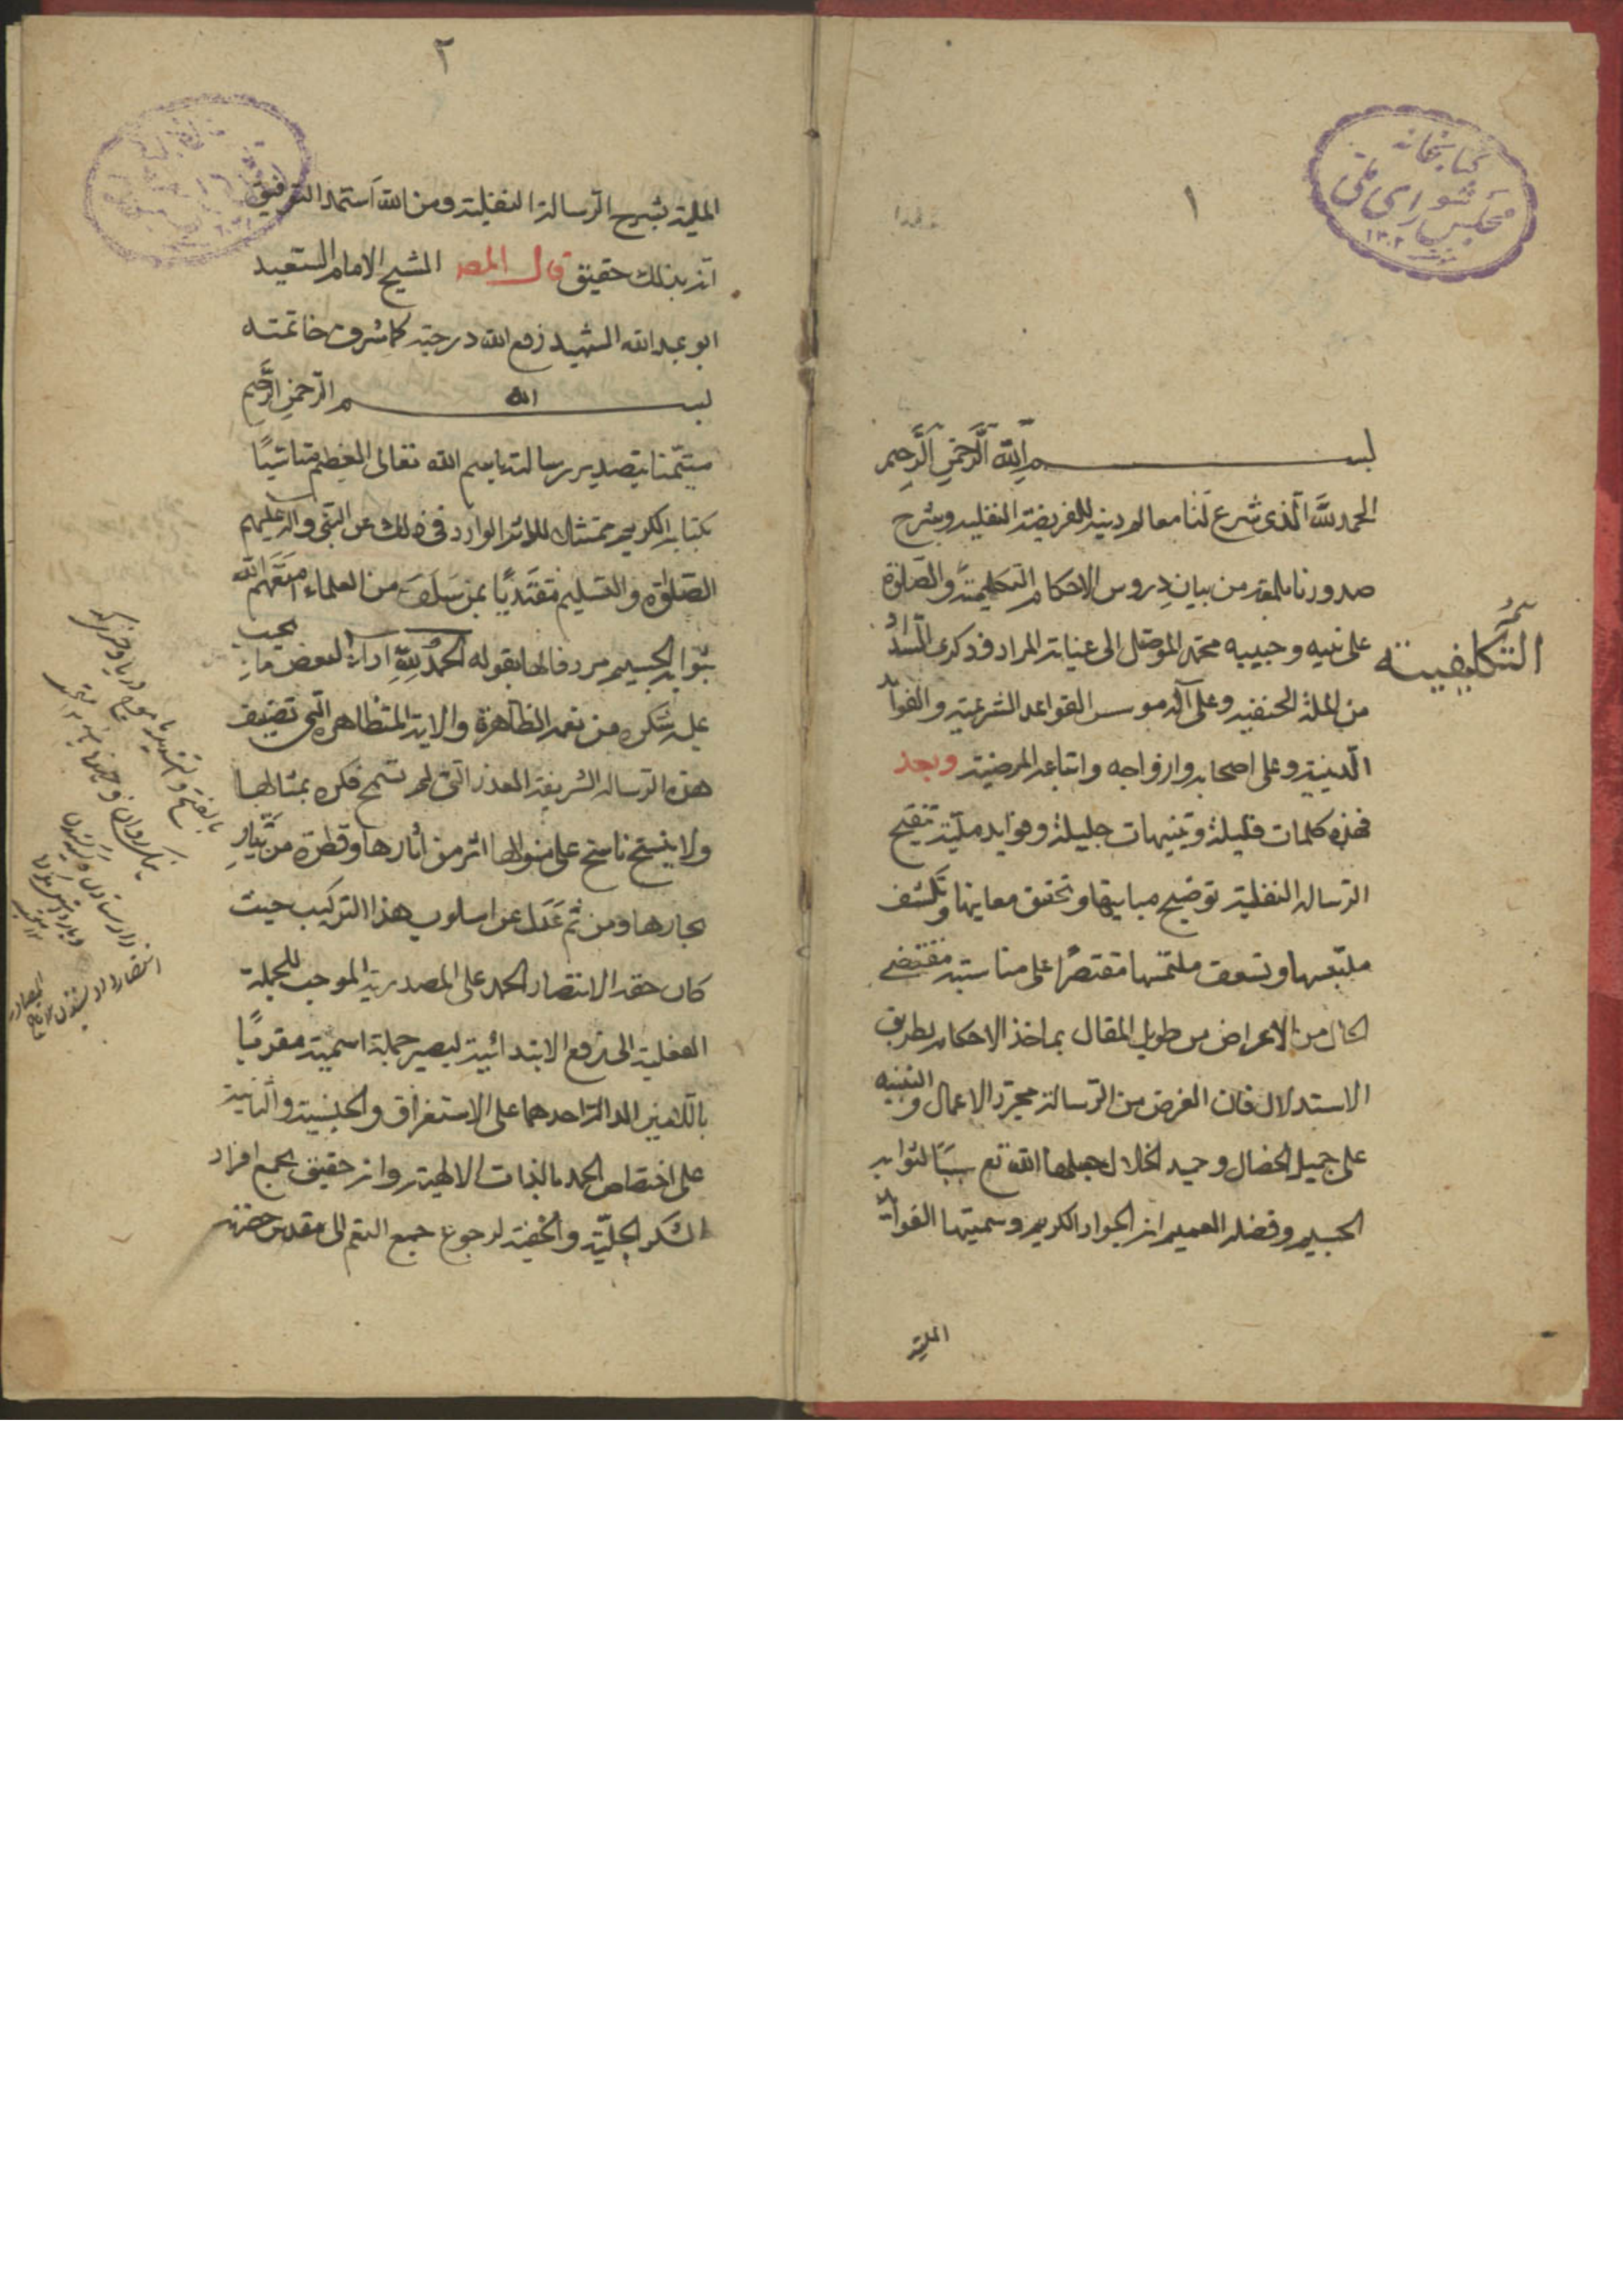 ١
كتابخانه
مجلس شوراى ملى
١٣٠٢
بسم الله الرحمن الرحيم
الحمد لله الذى شرع لنا معالم دينه للفريضة النفلية وشرح
صدورنا بلمعة من بيان دروس الاحكام التكليفية والصلوة
على نبيه وحبيبه محمد الموصل الى غيات المراد فى ذكرى السداد
من الملة الحنفية وعلى آله موسس القواعد الشرعية والفوائد
الدينية وعلى اصحابه وازواجه واتباعه المرضية وبعد
فهذه كلمات قليلة وتنبيهات جليلة وفوايد مليّة تنقيح
الرسالة النفلية توضيح مبانيها وتحقق معاينها وتكشف
ملتبسها وتسعف ملتمسها مقتصرًا على مناسبة مقتضى
الحال من الاعراض من طويل المقال بماخذ الاحكام بطريق
الاستدلال فان الغرض من الرسالة مجرد الاعمال والتنبيه
على جميل الخصال وحميد الخلال جعلها الله تع سببًا لثوابه
الجسيم وفضله العميم انه الجواد الكريم وسميتها الفوائد
الملية
التكليفية
٢
الملية بشرح الرسالة النفلية ومن الله استمد التوفيق
انه بذلك حقيق قال المصـ الشيخ الامام السعيد
ابو عبد الله الشهيد رفع الله درجته كما شرف خاتمته
بسم الله الرحمن الرحيم
متيمّنا بتصدير رسالته باسم الله تعالى العظيم متاسّيًا
بكتابه الكريم متمثلا للاثر الوارد فى ذلك عن النبى وآله عليهم
الصلوة والتسليم مقتديًا بمن سلف من العلماء امتعهم الله
بثوابه الجسيم مردفا لها بقوله الحمد لله اداءً لبعض ما يجب
عليه شكره من نعمه الظاهرة والايه المتظاهرة التى تصنيف
هذه الرسالة الشريفة الفذة التى لم تسمح فكره بمثالها
ولا ينسج ناسج على منوالها اثر من اثارها وقطرة من تيّار
بحارها ومن ثم عدل عن اسلوب هذا التركيب حيث
كان حقه الانتصار الحمد على المصدرية الموجب للجملة
الفعلية الى رفع الابتدائية ليصير جملة اسمية مقرونًا
باللامين الدالة احدهما على الاستغراق والجنسية والثانية
على اختصاص الحمد بالذات الالهية وانه حقيق بجميع افراد
الشكر الجليّة والخفية لرجوع جميع النعم الى مقدس حضرته